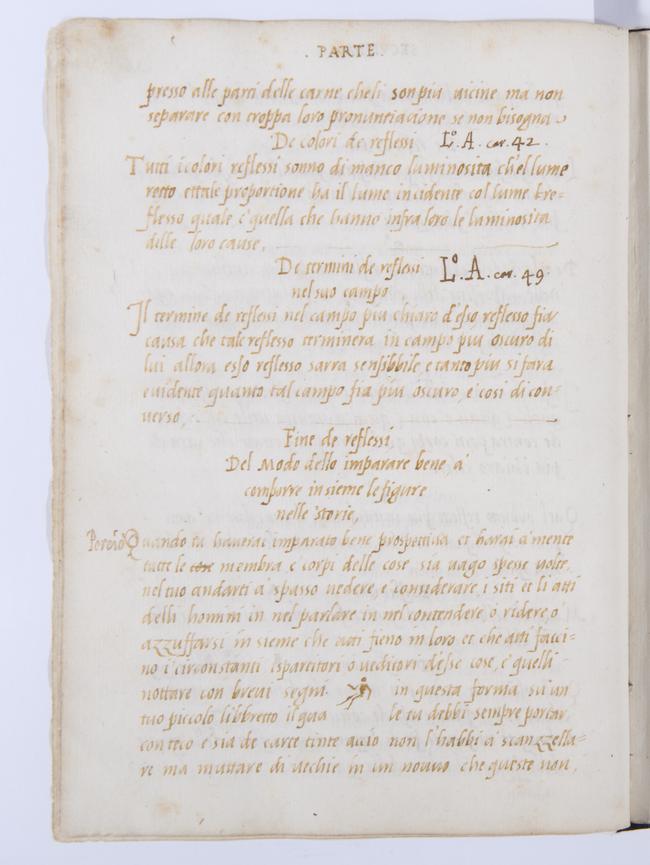 . PARTE .
presso alle parti delle carne cheli son piu vicine ma non
separare con troppa loro pronuntiatione se non bisogna
De colori de reflessi L.º A. car. 42.
Tutti i colori reflessi sonno di manco luminosita ch'el lume
retto et tale proportione ha il lume incidente col lume kre=
flesso quale e' quella che hanno infra loro le luminosita
delle loro cause.
De termini de reflessi L.º A. car. 49
nel suo campo
Il termine de reflessi nel campo piu chiaro d'esso reflesso fia
causa che tale reflesso terminera in campo piu oscuro di
lui allora esso reflesso sarra sensibbile, e tanto piu si fara
evidente quanto tal campo fia piu oscuro, e' cosi di con=
verso
Fine de reflessi,
Del Modo dello imparare bene a'
comporre insieme le figure
nelle storie,
Quando tu haverai imparato bene prospettiva et harai a' mente
tutte le membra e' corpi delle cose, sia vago spesse volte
nel tuo andarti a' spasso vedere, e' considerare, i siti et li atti
delli homini in nel parlare in nel contendere o' ridere, o'
azzuffarsi in sieme che atti fieno in loro et che atti facci=
no i' circonstanti ispartitori o' veditori d'esse cose, e' quelli
nottare con brevi segni in questa forma su' un
tuo piccolo libbretto il qua le tu debbi sempre portar
con teco e' sia de carte tinte accio non l'habbi a' scanzzella=
re ma muttare di vechie in un nouvo che queste non